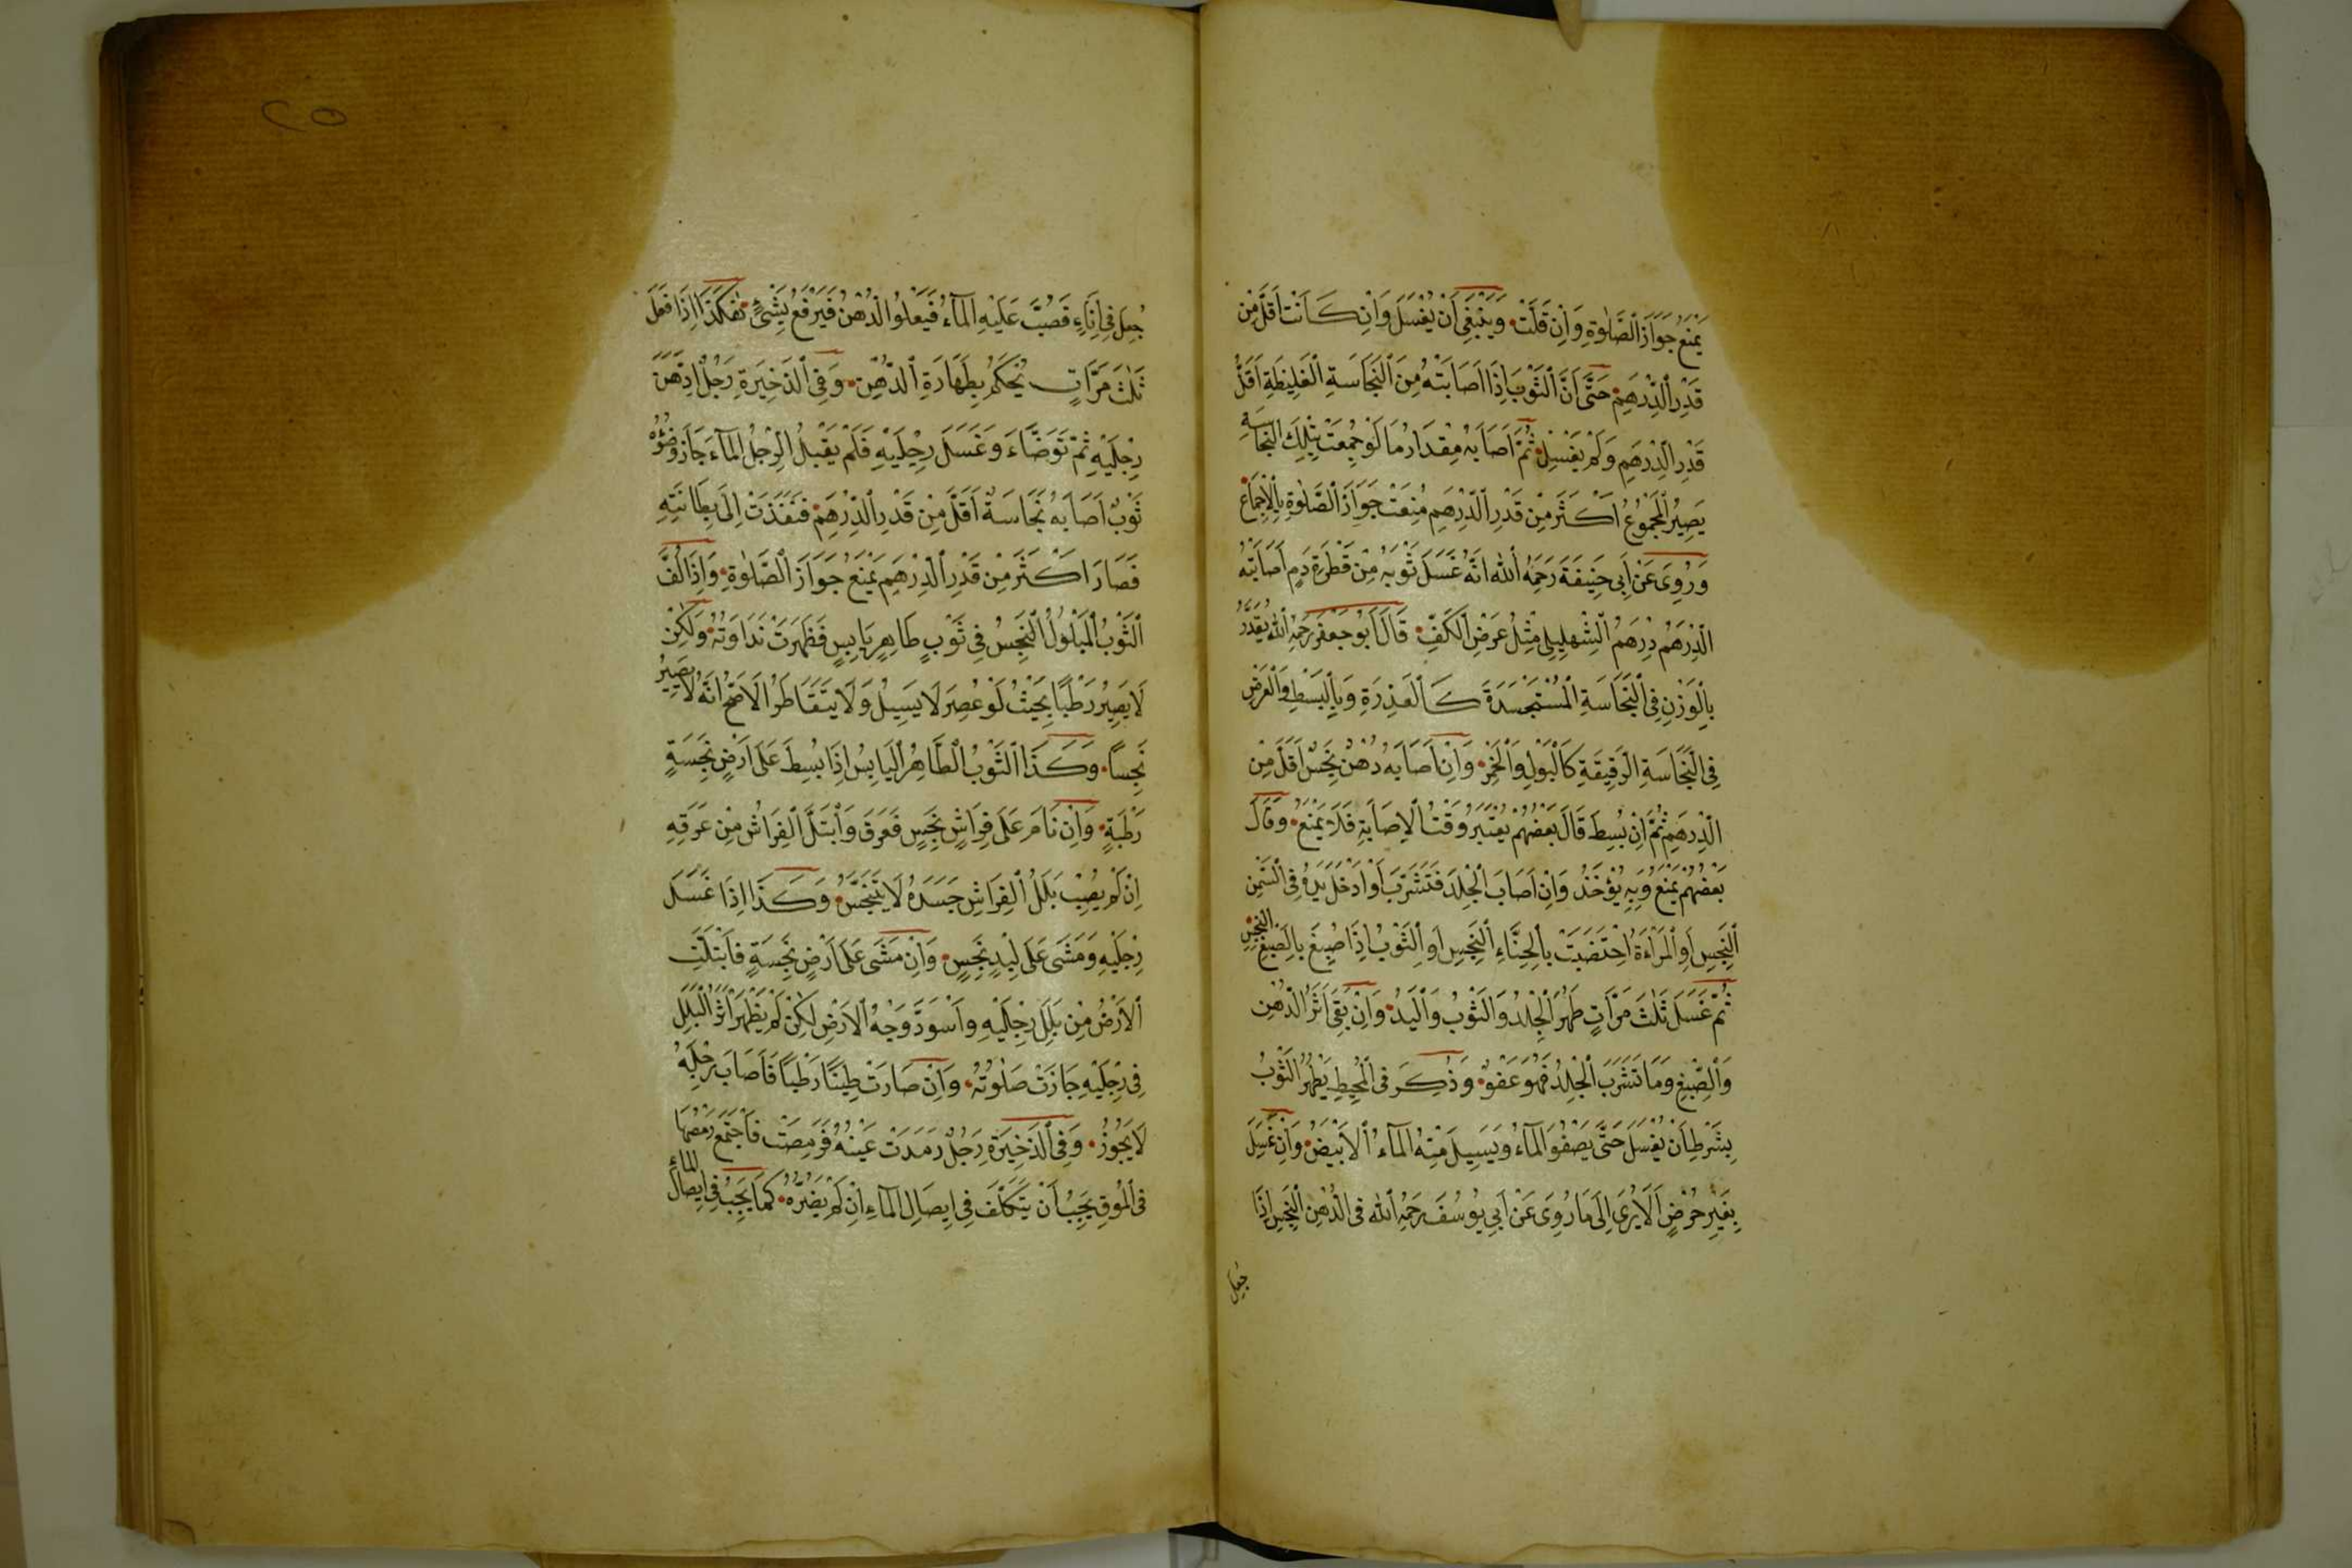 يَمْنَعُ جَوَازَ الصَّلٰوةِ وَاِنْ قَلَّتْ وَيَنْبَغِى اَنْ يُغْسَلَ وَاِنْ كَانَتْ اَقَلَّ مِنْ
قَدْرِ الدِّرْهَمِ حَتَّى اَنَّ الثَّوْبَ اِذَا اَصَابَتْهُ مِنَ النَّجَاسَةِ الْغَلِيظَةِ اَقَلُّ
قَدْرِ الدِّرْهَمِ وَلَمْ يَغْسِلْ ثُمَّ اَصَابَهُ مِقْدَارُ مَا لَوْ جُمِعَتْ بِتِلْكَ النَّجَاسَةِ
يَصِيرُ الْمَجْمُوعُ اَكْثَرَ مِنْ قَدْرِ الدِّرْهَمِ مُنِعَتْ جَوَازَ الصَّلٰوةِ بِالْاِجْمَاعِ
وَرُوِىَ عَنْ اَبِى حَنِيفَةَ رَحِمَهُ اللّٰه اَنَّهُ غَسَلَ ثَوْبَهُ مِنْ قَطْرَةِ دَمٍ اَصَابَتْهُ
الدِّرْهَمُ دِرْهَمُ الشَّهْلِيلِى مِثْلُ عَرْضِ الْكَفِّ قَالَ اَبُو جَعْفَرٍ رَحِمَهُ اللّٰه يُقَدَّرُ
بِالْوَزْنِ فِى النَّجَاسَةِ الْمُسْتَجْسَدَةِ كَالْعَذِرَةِ وَبِالْبَسْطِ وَالْعَرْضِ
فِى النَّجَاسَةِ الرَّقِيقَةِ كَالْبَوْلِ وَالْخَمْرِ وَاِنْ اَصَابَهُ دُهْنٌ نَجِسٌ اَقَلَّ مِنَ
الدِّرْهَمِ ثُمَّ اِنْ بُسِطَ قَالَ بَعْضُهُمْ يُعْتَبَرُ وَقْتُ الْاِصَابَةِ فَلَا يَمْنَعُ وَقَالَ
بَعْضُهُمْ يَمْنَعُ وَبِهِ يُؤْخَذُ وَاِنْ اَصَابَ الْجِلْدَ فَتَشَرَّبَ اَوْ اَدْخَلَ يَدَهُ فِى السَّمْنِ
النَّجِسِ اَوِ الْمَرْاَةُ اخْتَضَبَتْ بِالْحِنَّاءِ النَّجِسِ اَوِ الثَّوْبُ اِذَا صُبِغَ بِالصِّبْغِ النَّجِسِ
ثُمَّ غَسَلَ ثَلٰثَ مَرَّاتٍ طَهُرَ الْجِلْدُ وَالثَّوْبُ وَالْيَدُ وَاِنْ بَقِىَ اَثَرُ الدُّهْنِ
وَالصِّبْغِ وَمَا تَشَرَّبَ الْجِلْدُ فَهُوَ عَفْوٌ وَذُكِرَ فِى الْمُحِيطِ يَطْهُرُ الثَّوْبُ
بِشَرْطِ اَنْ يُغْسَلَ حَتَّى يَصْفُوَ الْمَاءُ وَيَسِيلَ مِنْهُ الْمَاءُ الْاَبْيَضُ وَاِنْ غُسِلَ
بِغَيْرِ حُرْضٍ اَلَا يُرَى اِلَى مَا رُوِىَ عَنْ اَبِى يُوسُفَ رَحِمَهُ اللّٰه فِى الدُّهْنِ النَّجِسِ اِذَا
جُعِلَ
٢٥
جُعِلَ فِى اِنَاءٍ فَصُبَّ عَلَيْهِ الْمَاءُ فَيَعْلُوا الدُّهْنُ فَيَرْفَعُ بِشَىْءٍ هٰكَذَا اِذَا فَعَلَ
ثَلٰثَ مَرَّاتٍ يُحْكَمُ بِطَهَارَةِ الدُّهْنِ وَفِى الذَّخِيرَةِ رَجُلٌ ادَّهَنَ
رِجْلَيْهِ ثُمَّ تَوَضَّاءَ وَغَسَلَ رِجْلَيْهِ فَلَمْ يَقْبَلُ الرِّجْلُ الْمَاءَ جَازَ وُضُوؤُهُ
ثَوْبٌ اَصَابَهُ نَجَاسَةٌ اَقَلَّ مِنْ قَدْرِ الدِّرْهَمِ فَنَفَذَتْ اِلَى بِطَانَتِهِ
فَصَارَ اَكْثَرَ مِنْ قَدْرِ الدِّرْهَمِ يَمْنَعُ جَوَازَ الصَّلٰوةِ وَاِذَا لُفَّ
الثَّوْبُ الْمَبْلُولُ النَّجِسُ فِى ثَوْبٍ طَاهِرٍ يَابِسٍ فَظَهَرَتْ نَدَاوَتُهُ وَلٰكِنْ
لَا يَصِيرُ رَطْبًا بِحَيْثُ لَوْ عُصِرَ لَا يَسِيلُ وَلَا يَتَقَاطَرُ الْاَصَحُّ اَنَّهُ لَا يَصِيرُ
نَجِسًا وَكَذَا الثَّوْبُ الطَّاهِرُ الْيَابِسُ اِذَا بُسِطَ عَلَى اَرْضٍ نَجِسَةٍ
رَطْبَةٍ وَاِنْ نَامَ عَلَى فِرَاشٍ نَجِسٍ فَعَرِقَ وَابْتَلَّ الْفِرَاشُ مِنْ عَرَقِهِ
اِنْ لَمْ يُصِبْ بَلَلُ الْفِرَاشِ جَسَدَهُ لَا يَتَنَجَّسُ وَكَذَا اِذَا غَسَلَ
رِجْلَيْهِ وَمَشَى عَلَى لِبْدٍ نَجِسٍ وَاِنْ مَشَى عَلَى اَرْضٍ نَجِسَةٍ فَابْتَلَّتِ
الْاَرْضُ مِنْ بَلَلِ رِجْلَيْهِ وَاسْوَدَّ وَجْهُ الْاَرْضِ لٰكِنْ لَمْ يَظْهَرْ اَثَرُ الْبَلَلِ
فِى رِجْلَيْهِ جَازَتْ صَلٰوتُهُ وَاِنْ صَارَتْ طِينًا رَطْبًا فَاَصَابَ رِجْلَهُ
لَا يَجُوزُ وَفِى الذَّخِيرَةِ رَجُلٌ رَمِدَتْ عَيْنُهُ فَرَمِصَتْ فَاجْتَمَعَ رَمَصُهَا
فِى الْمُوقِ يَجِبُ اَنْ يَتَكَلَّفَ فِى اِيصَالِ الْمَاءِ اِنْ لَمْ يَضُرَّهُ كَمَا يَجِبُ فِى اِيصَالِ الْمَاءِ